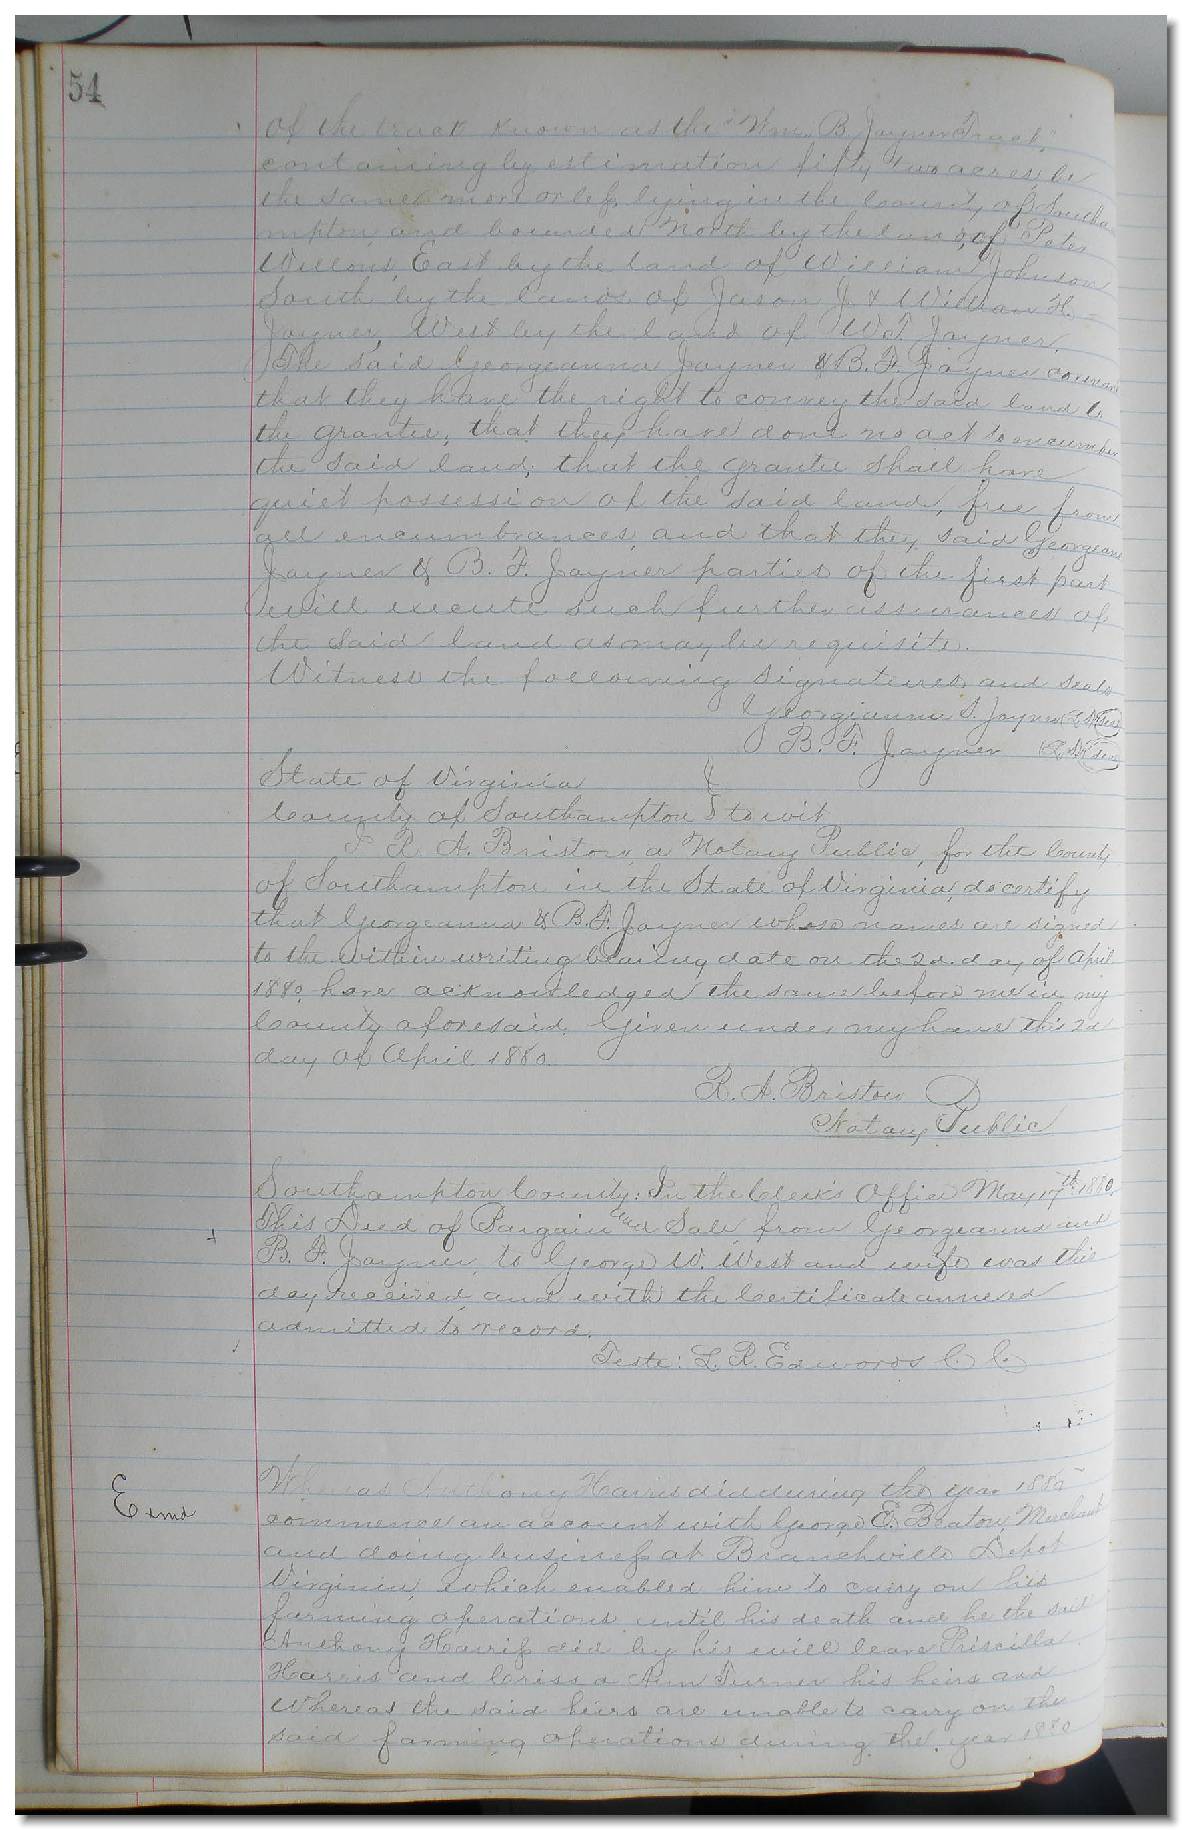 54
of the track known as the "Wm. B Joyner Track,"
containing by estimation fifty two acres, be
the same more or less, lying in the County of Southa-
mpton, and bounded North by the lands of Peter
East by the land of William Johnson
South by the lands of Jason J. & William H. =
Joyner, West by the land of W.T. Joyner.
The said Georgeanna Joyner & B. F. Joyner covenant
that they have the right to convey the said land to
the grantee, that they have done no act to encumber
the said land; that the grantee shall have
quiet possession of the said land, free from
all encumbrances, and that they said Georgeana
Joyner & B. F. Joyner parties of the first part
will execute such further assurances of
the said land as may be requisite.
Witness the following signatures and seals
Georgianna S. Joyner L.S. Seal
B. F. Joyner L.S. Seal
State of Virginia
County of Southampton } to wit
I R. A. Bristow, a Notary Public, for the County
of Southampton in the State of Virginia, do certify
that Georgeanna & B. F. Joyner whose names are signed
to the within writing bearing date on the 2d. day of April
1880, have acknowledged the same before me in my
County aforesaid. Given under my hand this 2d
day of April 1880.
R. A. Bristow
Notary Public
Southampton County: In the Clerk's Office May 17th 1880.
This Deed of Bargain and Sale from Georgeanna and
B. F. Joyner, to George W. West and wife was this
day received, and with the Certificate annexed
admitted to record.
Teste: L. R. Edwards C. C.
Exmd
Whereas Anthony Harris did during the year 1880
commence an account with George E. Beaton, Merchant
and doing business at Branchville Depot
Virginia, which enabled him to carry on his
farming operations until his death and he the said
Anthony Harris did by his will leave Priscilla
Harris and Crissa Ann Turner his heirs and
Whereas the said heirs are unable to carry on the
said farming operations during the year 1880